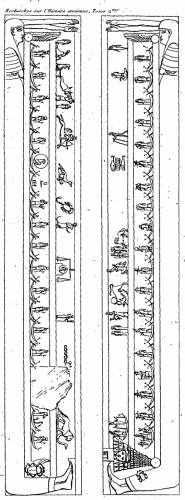 Recherches sur l'Histoire ancienne, Tome 4.me